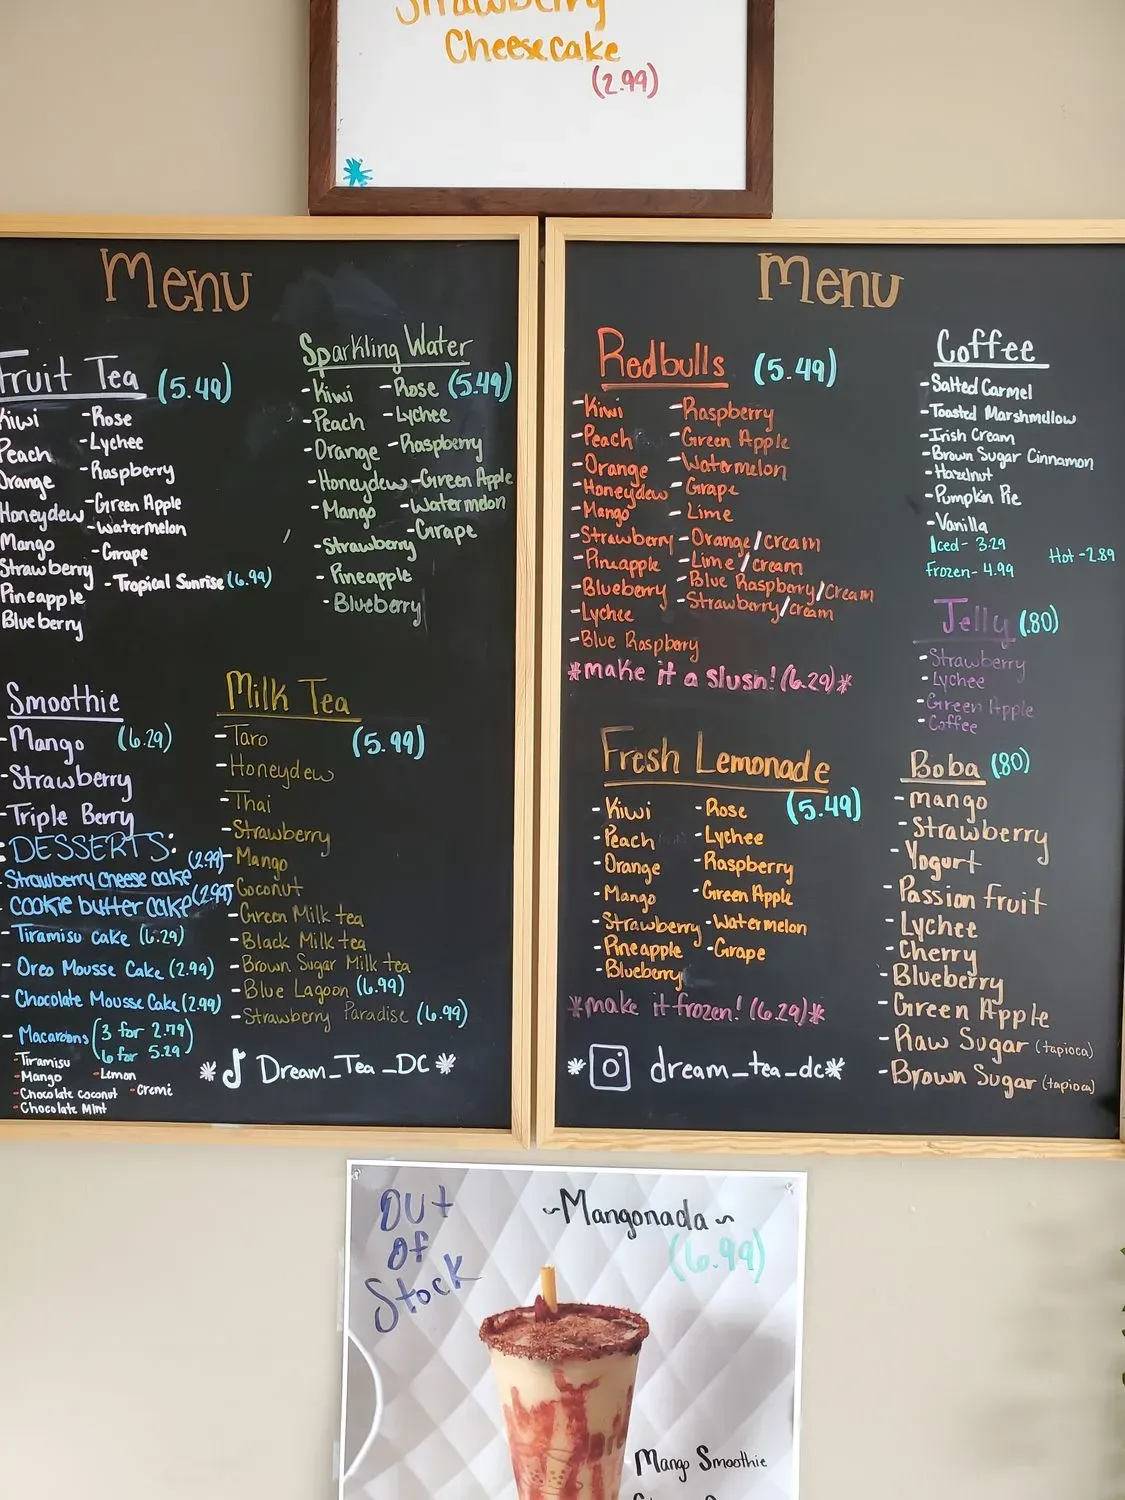 Strawberry
Cheesecake
(2.99)
Menu
Fruit Tea (5.49)
Kiwi
Peach
Orange
Honeydew
Mango
Strawberry
Pineapple
Blueberry
-Rose
-Lychee
-Raspberry
-Green Apple
-Watermelon
-Grape
-Tropical Sunrise (6.99)
Sparkling Water
(5.49)
-Kiwi
-Peach
-Orange
-Honeydew
-Mango
-Strawberry
-Pineapple
-Blueberry
-Rose
-Lychee
-Raspberry
-Green Apple
-Watermelon
-Grape
Smoothie
-Mango (6.29)
-Strawberry
-Triple Berry
DESSERTS:
Strawberry cheese cake (2.99)
- Cookie butter cake (2.99)
- Tiramisu cake (6.29)
- Oreo Mousse Cake (2.99)
- Chocolate Mousse Cake (2.99)
- Macaroons (3 for 2.79
6 for 5.29)
-Tiramisu
-Mango
-Lemon
-Chocolate coconut
-Creme
-Chocolate Mint
Milk Tea
(5.99)
-Taro
-Honeydew
-Thai
-Strawberry
-Mango
-Coconut
-Green Milk tea
-Black Milk tea
-Brown Sugar Milk tea
-Blue Lagoon (6.99)
-Strawberry Paradise (6.99)
* Dream_Tea_DC *
Menu
Redbulls (5.49)
-Kiwi
-Peach
-Orange
-Honeydew
-Mango
-Strawberry
-Pineapple
-Blueberry
-Lychee
-Blue Raspberry
-Raspberry
-Green Apple
-Watermelon
-Grape
-Lime
-Orange/cream
-Lime/cream
-Blue Raspberry/cream
-Strawberry/cream
*make it a slush! (6.29)*
Fresh Lemonade
(5.49)
-Kiwi
-Peach
-Orange
-Mango
-Strawberry
-Pineapple
-Blueberry
-Rose
-Lychee
-Raspberry
-Green Apple
-Watermelon
-Grape
*make it frozen! (6.29)*
* dream_tea_dc*
Coffee
-Salted Carmel
-Toasted Marshmellow
-Irish Cream
-Brown Sugar Cinnamon
-Hazelnut
-Pumpkin Pie
-Vanilla
Iced- 3.29
Hot -2.89
Frozen- 4.99
Jelly (.80)
-Strawberry
-Lychee
-Green Apple
-Coffee
Boba (.80)
-Mango
-Strawberry
-Yogurt
-Passion Fruit
-Lychee
-Cherry
-Blueberry
-Green Apple
-Raw Sugar (tapioca)
-Brown Sugar (tapioca)
Out
of
Stock
~Mangonada~
(6.99)
Mango Smoothie